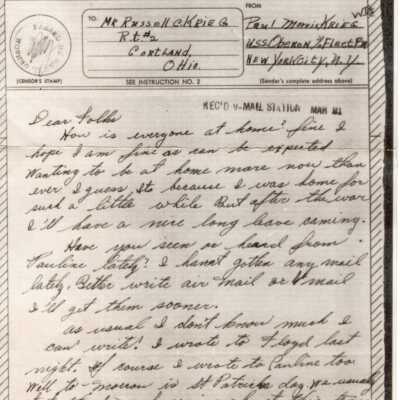 TO:
MR RUSSELL C KRIEG
R.t.#2
CORTLAND,
OHIO.
FROM
PAUL MORRIS KRIEG
USS OBERON % FLEET P.O.
NEW YORK CITY, N.Y.
(CENSOR'S STAMP)
SEE INSTRUCTION NO. 2
(Sender's complete address above)
REC'D V-MAIL STATION MAR
Dear Folks
How is everyone at home? fine I
hope I am fine as can be expected
Wanting to be at home more now than
ever I guess, Its because I was home for
such a little while But after the war
I'll have a nice long leave coming.
Have you seen or heard from
Pauline lately? I havnt gotten any mail
lately. Better write air mail or V mail
I'll get them sooner.
As usual I don't know much I
can write! I wrote to Floyd last
night. Of course I wrote to Pauline too.
Well to morrow is St Patricks day. We usually